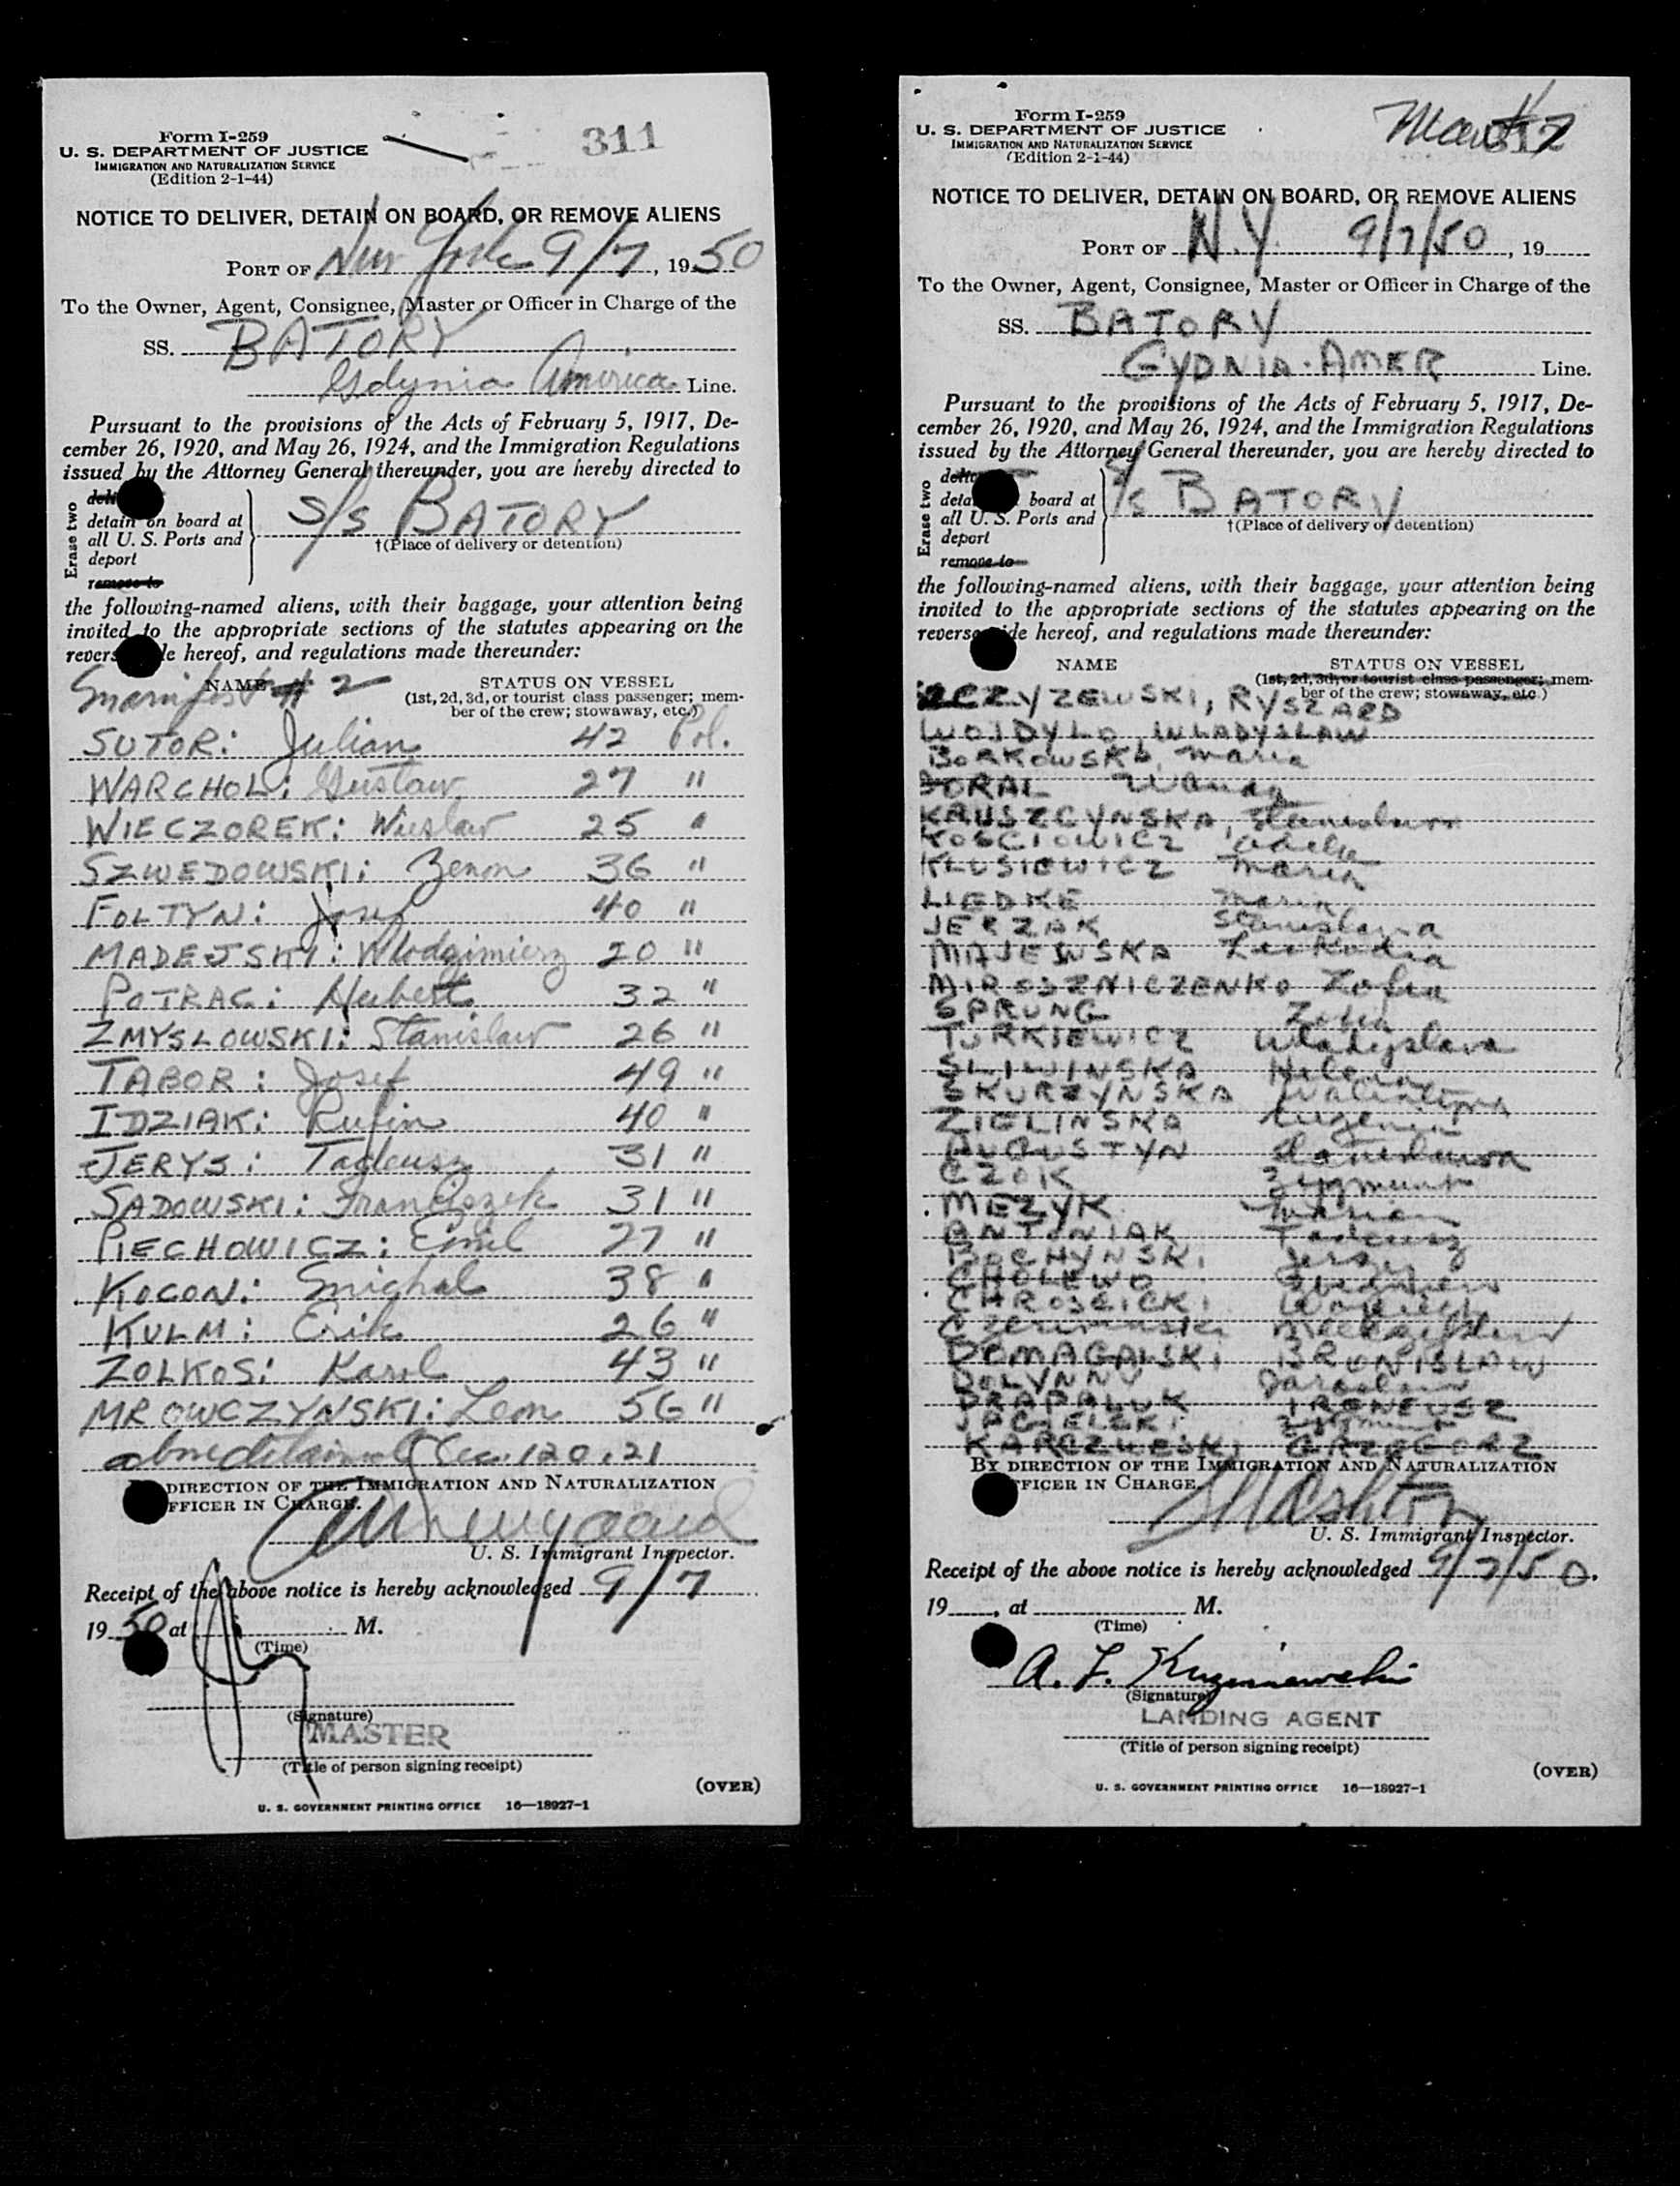 Form I-259
U. S. DEPARTMENT OF JUSTICE
IMMIGRATION AND NATURALIZATION SERVICE
(Edition 2-1-44)
311
NOTICE TO DELIVER, DETAIN ON BOARD, OR REMOVE ALIENS
PORT OF New York 9/7, 1950
To the Owner, Agent, Consignee, Master or Officer in Charge of the
SS. BATORY
Gdynia America Line.
Pursuant to the provisions of the Acts of February 5, 1917, De-
cember 26, 1920, and May 26, 1924, and the Immigration Regulations
issued by the Attorney General thereunder, you are hereby directed to
Erase two
detain on board at
all U. S. Ports and
deport
remove to
S/S BATORY
†(Place of delivery or detention)
the following-named aliens, with their baggage, your attention being
invited to the appropriate sections of the statutes appearing on the
hereof, and regulations made thereunder:
NAME
Manifest # 2
STATUS ON VESSEL
(1st, 2d, 3d, or tourist class passenger; mem-
ber of the crew; stowaway, etc.)
SUTOR: Julian 42 Pol.
WARCHOL: Gustaw 27 "
WIECZOREK: Wieslaw 25 "
SZWEDOWSKI: Zenon 36 "
FOLTYN: Josef 40 "
MADEJSKI: Wlodzimierz 20 "
POTRAC: Hubert 32 "
ZMYSLOWSKI: Stanislaw 26 "
TABOR: Josef 49 "
IDZIAK: Rufin 40 "
JERYS: Tadeusz 31 "
SADOWSKI: Franciszek 31 "
PIECHOWICZ: Emil 27 "
KOCON: Michal 38 "
KULM: Erik 26 "
ZOLKOS: Karol 43 "
MROWCZYNSKI: Leon 56 "
above detained Sec. 120.21
DIRECTION OF THE IMMIGRATION AND NATURALIZATION
FFICER IN CHARGE.
U. S. Immigrant Inspector.
Receipt of the above notice is hereby acknowledged 9/7
1950 at M.
(Time)
(Signature)
MASTER
(Title of person signing receipt)
(OVER)
U. S. GOVERNMENT PRINTING OFFICE 16—18927-1
Form I-259
U. S. DEPARTMENT OF JUSTICE
IMMIGRATION AND NATURALIZATION SERVICE
(Edition 2-1-44)
NOTICE TO DELIVER, DETAIN ON BOARD, OR REMOVE ALIENS
PORT OF N.Y. 9/7/50, 19
To the Owner, Agent, Consignee, Master or Officer in Charge of the
SS. BATORY
GYDNIA-AMER Line.
Pursuant to the provisions of the Acts of February 5, 1917, De-
cember 26, 1920, and May 26, 1924, and the Immigration Regulations
issued by the Attorney General thereunder, you are hereby directed to
Erase two
board at
all U. S. Ports and
deport
remove to
S/S BATORY
†(Place of delivery or detention)
the following-named aliens, with their baggage, your attention being
invited to the appropriate sections of the statutes appearing on the
hereof, and regulations made thereunder:
NAME
STATUS ON VESSEL
(1st, 2d, 3d, or tourist class passenger; mem-
ber of the crew; stowaway, etc.)
RYSZARD
WOJDYLO WLADYSLAW
Maria
Wanda
KRUSZCYNSKA, Stanislawa
KOSCIOWICZ
KLUSIEWICZ Maria
LIEDKE Maria
JERZAK Stanislawa
MAJEWSKA Leokadia
MIROSZNICZENKO Zofia
SPRUNG Zofia
TURKIEWICZ Wladyslawa
SLIWINSKA Helena
SKURZYNSKA Walentyna
ZIELINSKA Eugenia
AUGUSTYN Stanislawa
CZOK Zygmunt
MEZYK Marian
ANTONIAK Tadeusz
BOCHYNSKI Jerzy
CHOLEWO
CHROSCICKI
DOMAGALSKI BRONISLAW
DOLYNNY Jaroslaw
DRAPALUK IRENEUSZ
GRZEGORZ
BY DIRECTION OF THE IMMIGRATION AND NATURALIZATION
FICER IN CHARGE.
U. S. Immigrant Inspector.
Receipt of the above notice is hereby acknowledged 9/7/50.
19, at M.
(Time)
A. F.
(Signature)
LANDING AGENT
(Title of person signing receipt)
(OVER)
U. S. GOVERNMENT PRINTING OFFICE 16—18927-1